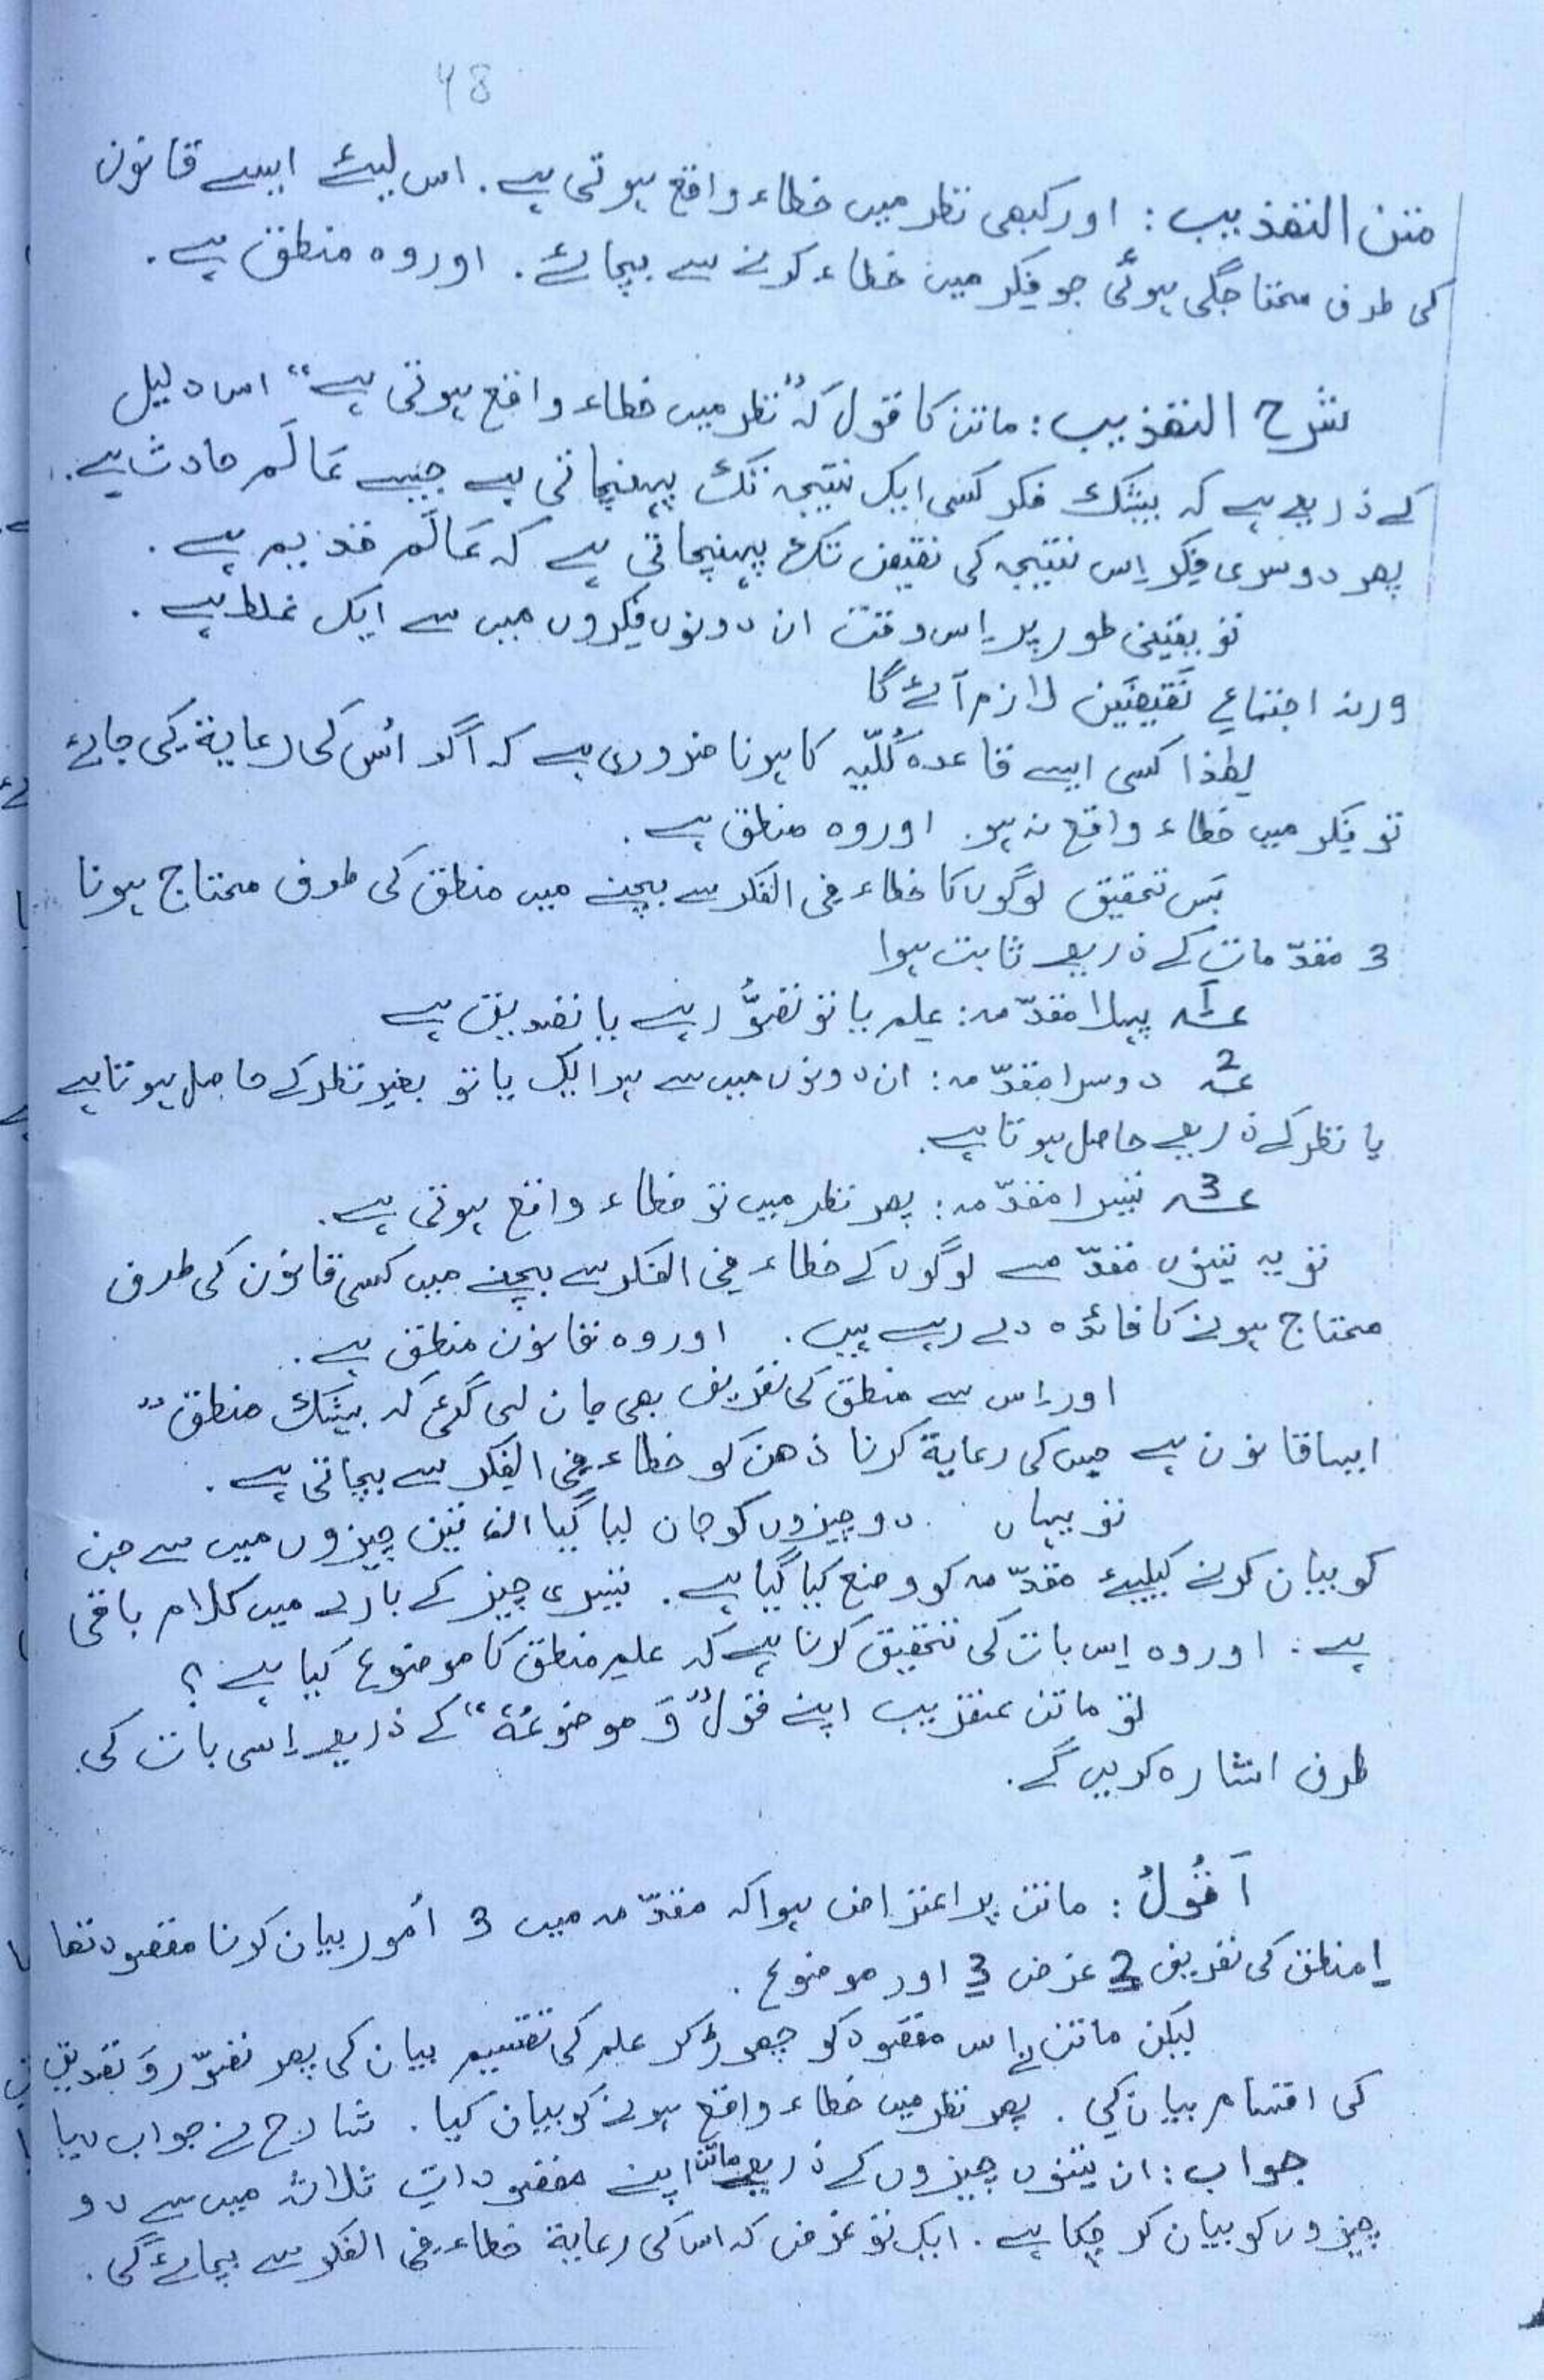 48
متن التھذیب: اور کبھی نظر میں خطاء واقع ہوتی ہے. اس لیئے ایسے قانون
کی طرف محتاجگی ہوئی جو فِکر میں خطاء کرنے سے بچائے. اور وہ منطق ہے.
شرح التھذیب: ماتن کا قول کہ "نظر میں خطاء واقع ہوتی ہے" اس دلیل
کے ذریعے ہے کہ بیشک فکر کسی ایک نتیجہ تک پہنچاتی ہے جیسے عَالَم حادث ہے.
پھر دوسری فِکر اِس نتیجہ کی نقیض تک پہنچاتی ہے کہ عَالَم قدیم ہے.
تو یقینی طور پر اِس وقت ان دونوں فِکروں میں سے ایک غلط ہے.
ورنہ اجتماعِ نَقِیضَین لازم آئے گا
لھٰذا کسی ایسے قاعدہ کُلّیہ کا ہونا ضروری ہے کہ اگر اُس کی رعایة کی جائے
تو فِکر میں خطاء واقع نہ ہو. اور وہ منطق ہے.
پَس تحقیق لوگوں کا خطاء فِی الفکر سے بچنے میں منطق کی طرف محتاج ہونا
3 مقدّمات کے ذریعے ثابت ہوا
؃1 پہلا مقدّمہ: عِلم یا تو تصوُّر ہے یا تصدیق ہے
؃2 دوسرا مقدّمہ: ان دونوں میں سے ہر ایک یا تو بغیر نظر کے حاصل ہوتا ہے
یا نظر کے ذریعے حاصل ہوتا ہے.
؃3 تیسرا مقدّمہ: پھر نظر میں تو خطاء واقع ہوتی ہے.
تو یہ تینوں مقدّمے لوگوں کے خطاء فِی الفکر سے بچنے میں کسی قانون کی طرف
محتاج ہونے کا فائدہ دے رہے ہیں. اور وہ قانون منطق ہے.
اور اِس سے منطق کی تعریف بھی جان لی گئی کہ بیشک منطق "
ایسا قانون ہے جس کی رعایة کرنا ذھن کو خطاء فِی الفِکر سے بچاتی ہے.
تو یہاں دو چیزوں کو جان لیا گیا ان تین چیزوں میں سے جن
کو بیان کرنے کیلیئے مقدّمہ کو وضع کیا گیا ہے. تیسری چیز کے بارے میں کلام باقی
ہے. اور وہ اِس بات کی تحقیق کرنا ہے کہ علمِ منطق کا موضوع کیا ہے؟
تو ماتن عنقریب اپنے قول "وَ موضوعُهٗ" کے ذریعے اِسی بات کی
طرف اشارہ کریں گے.
اَقُولُ: ماتن پر اعتراض ہوا کہ مقدّمہ میں 3 اُمور بیان کرنا مقصود تھا
1 منطق کی تعریف 2 غرض 3 اور موضوع.
لیکن ماتن نے اس مقصود کو چھوڑ کر علم کی تقسیم بیان کی پھر تصوّر وَ تصدیق
کی اقسام بیان کی. پھر نظر میں خطاء واقع ہونے کو بیان کیا. شارح نے جواب دیا
جواب: ان تینوں چیزوں کے ذریعے ماتن اپنے مقصوداتِ ثلاثہ میں سے دو
چیزوں کو بیان کر چکا ہے. ایک تو غرض کہ اس کی رعایة خطاء فِی الفکر سے بچائے گی.